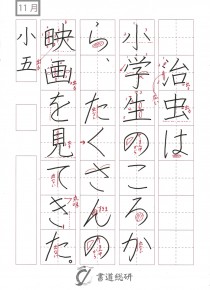 11月
小五
治虫は
小学生のころか
ら、たくさんの
映画を見てきた。
書道総研